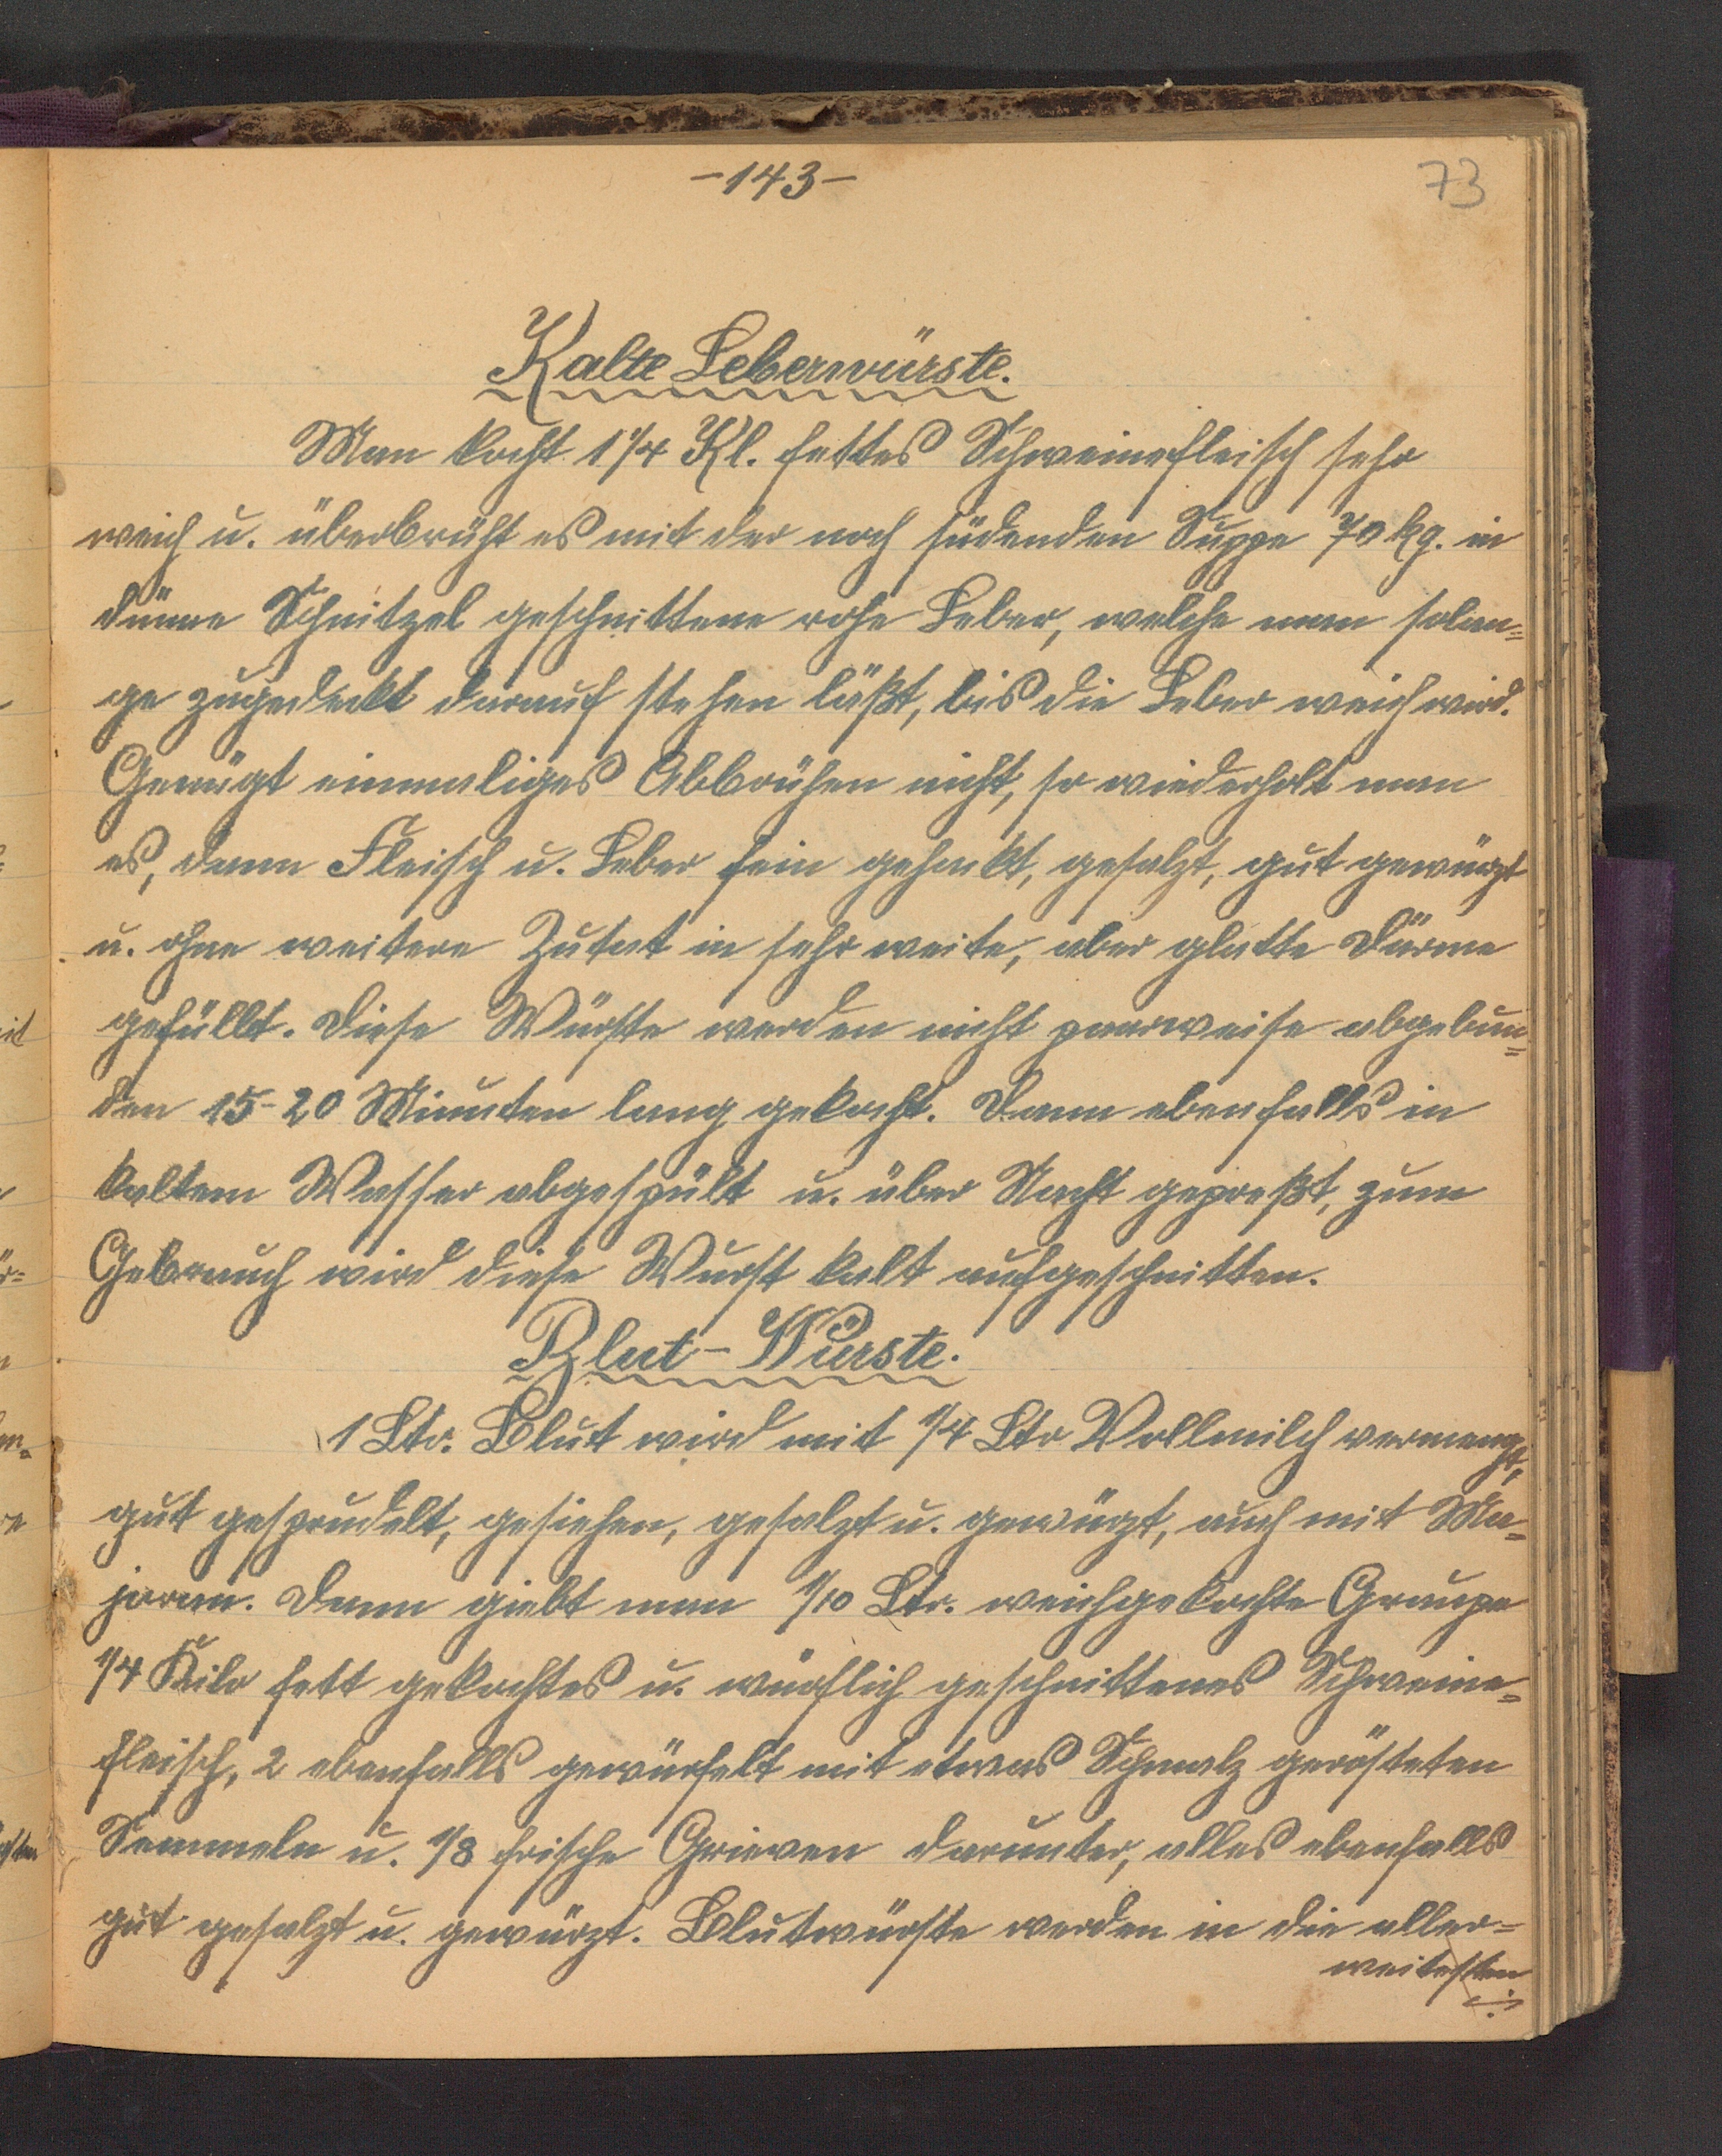 -143-
73
Kalte Leberwürste.
Man kocht 1 1/4 Kl. fettes Schweinefleisch sehr
weich u. überbrüht es mit der noch südenden Suppe 70 kg. in
dünne Schnitzel geschnittene rohe Leber, welche man solan=
ge zugedeckt darauf stehen läßt, bis die Leber weich wird.
Genügt einmaliges Abbrühen nicht, so wiederholt man
es, dann Fleisch u. Leber fein gehackt, gesalzt, gut gewürzt
u. ohne weitere Zutat in sehr weite, aber glatte Därme
gefüllt. Diese Würste werden nicht paarweise abgebun=
den 15-20 Minuten lang gekocht. Dann ebenfalls in
kaltem Wasser abgespült u. über Nacht gepreßt, zum
Gebrauch wird diese Wurst kalt aufgeschnitten.
Blut-Würste.
1 Ltr. Blut wird mit 1/4 Ltr Vollmilch vermengt,
gut gesprudelt, gesiehen, gesalzt u. gewürzt, auch mit Ma=
joran. Dann giebt man 1/10 Ltr. weichgekochte Graupe
1/4 Kilo fett gekochtes u. würflich geschnittenes Schweine=
fleisch, 2 ebenfalls gewürfelt mit etwas Schmalz gerösteten
Semmeln u. 1/8 frische Grieven darunter, alles ebenfalls
gut gesalzt u. gewürzt. Blutwürste werden in die aller=
weitesten